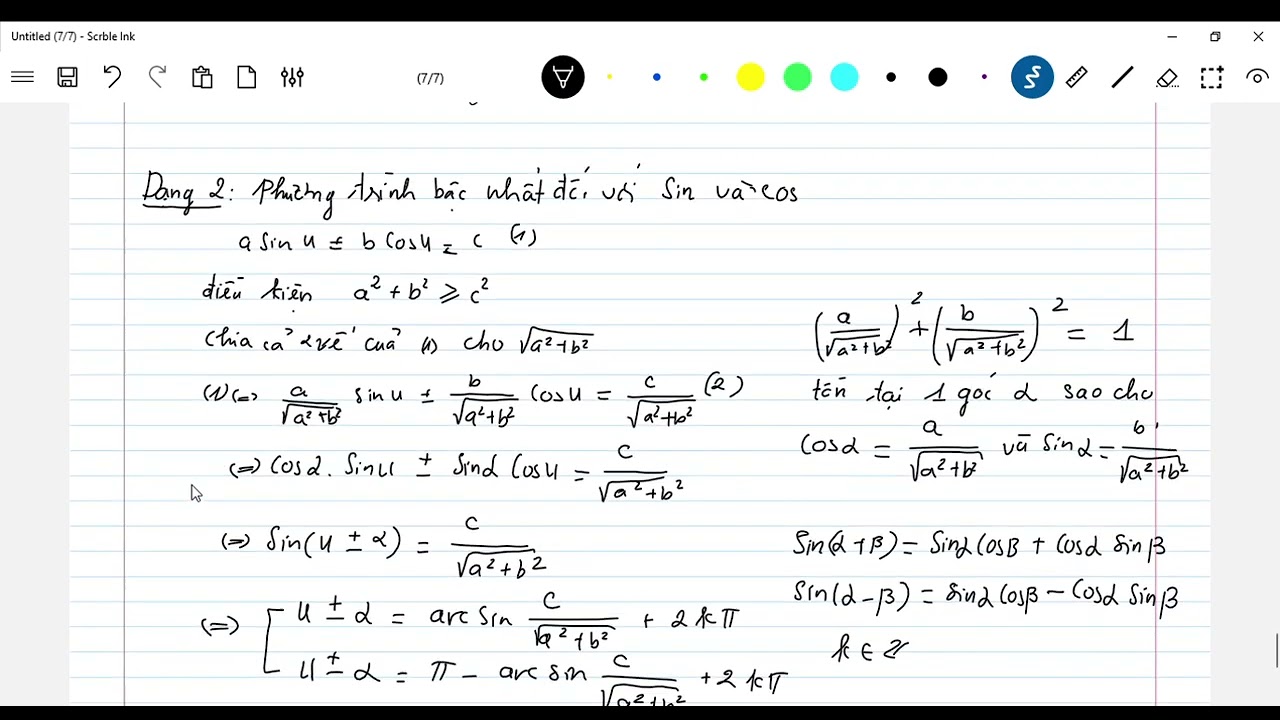 Untitled (7/7) - Scrble Ink
(7/7)
Dạng 2: Phương trình bậc nhất đối với Sin và cos
a sin u ± b cosu = c (1)
điều kiện a² + b² ⩾ c²
Chia cả 2 vế của (1) cho √(a²+b²)
(1) ⇔ a/√(a²+b²) sin u ± b/√(a²+b²) cosu = c/√(a²+b²) (2)
⇔ cosα. sinu ± sinα cosu = c/√(a²+b²)
⇔ Sin(u ± α) = c/√(a²+b²)
⇔ [ u ± α = arcsin c/√(a²+b²) + 2kπ
u ± α = π − arcsin c/√(a²+b²) + 2kπ
(a/√(a²+b²))² + (b/√(a²+b²))² = 1
tồn tại 1 góc α sao cho
Cosα = a/√(a²+b²) và Sinα = b/√(a²+b²)
Sin(α+β) = Sinα Cosβ + Cosα Sinβ
Sin(α−β) = Sinα Cosβ − Cosα Sinβ
k ∈ ℤ